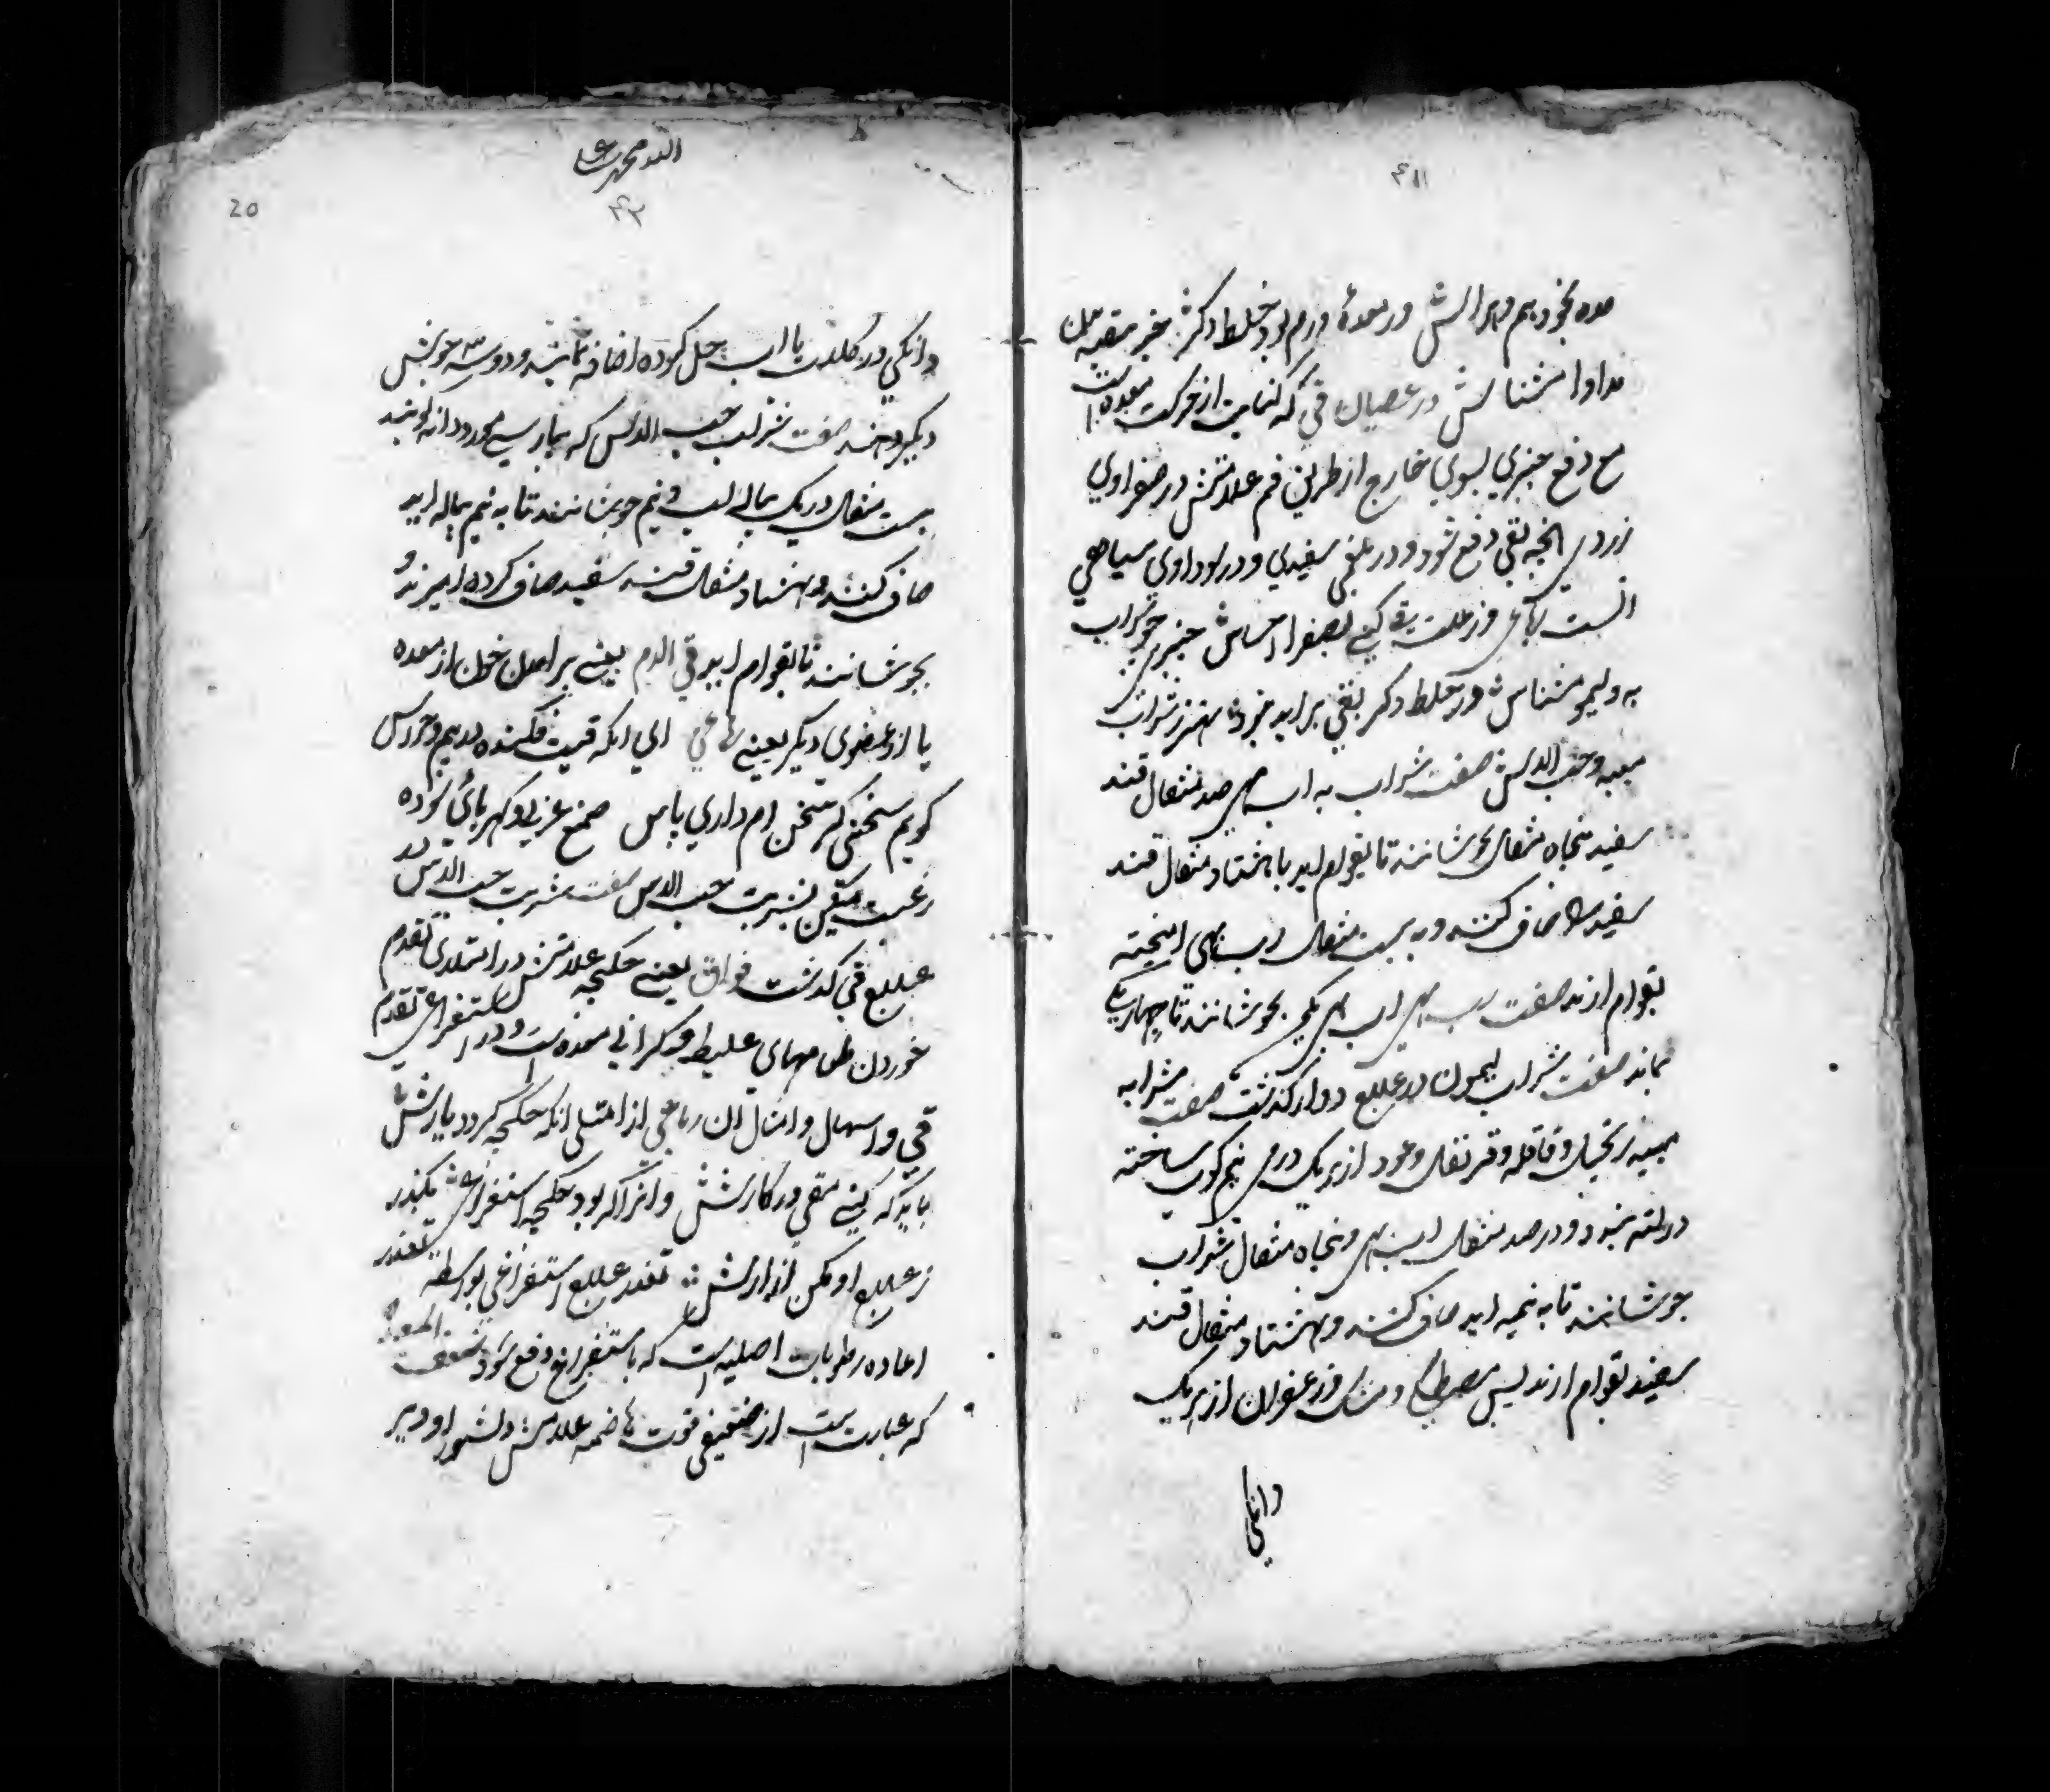 ۴۱
مده نخود بهم و برا لش ور معدهٔ ورم بود خلط دکر خیر
مداوا شناسش در عصیان قی که کنایت از حرکت معده است
مع دفع چیزی بسوی خارج از طریق فم علامتش در صفراوی
زردی انچه بقی دفع شود و در بلغمی سفیدی و در سوداوی سیاهی
انست رباعی ور علت قی کنی بصفرا احساس چیزی چو شراب
به و لیمو مشناس ور خلط دکر بقی براید نبود بهتر ز شراب
میبه و حب الاس صفت شراب به اب بهی صد مثقال قند
سفید پنجاه مثقال بجوشانند تا بقوام اید یا هشتاد مثقال قند
سفید را صاف کنند و به بیست مثقال رب بهی امیخته
بقوام ارند صفت رب بهی اب بهی بجوشانند تا چهار یک
بماند صفت شراب لیمون در علاج دوار گذشت صفت شراب
میبه زنجبیل و قاقله و قرنفل و عود از هر یک درمی نیم کوب ساخته
در لته بندند و در صد مثقال اب بهی و پنجاه مثقال شراب
جوشانند تا به نیمه اید صاف کنند و بهشتاد مثقال قند
سفید بقوام ارند پس مصطکی و مشک و زعفران از هر یک
دانکی
الله محمد علی
۴۲
20
دانکی در کلاب یا اب حل کرده اضافه نمایند و دو سه جوش
دیکر دهند صفت شراب حب الاس که بپارسی مورد دانه کویند
بیست مثقال در یک پیاله اب و نیم جوشانند تا به نیم پیاله اید
صاف کنند و بهشتاد مثقال قند سفید صاف کرده امیزند و
بجوشانند تا بقوام اید قی الدم یعنی برامدن خون از معده
یا از عضوی دیکر یعنی رباعی ای انکه قیت فکنده در بیم و هراس
کویم سخنی کر سخن ام داری پاس صمغ عربی و کهربای سوده
رغبت میکن بشربت حب الاس صفت شربت حب الاس در
علاج قی گذشت فواق یعنی حکچه علامتش در امتلائی تقدم
خوردن طعامهای غلیظ و کرانی معده است و در استفراغی تقدم
قی و اسهال و امثال ان رباعی از امتلی انکه حکچه کردد یارش
باید که کنی مقی در کارش وانرا که بود حکچه استفراغی مکذر
ز علاج او مکن ازارش تعذر علاج استفراغی بواسطه تعذر
اعاده رطوبات اصلیه است که باستفراغ دفع شود ضعف المعده
که عبارت است از ضعیفی قوت هاضمه علامتش دشوار و دیر